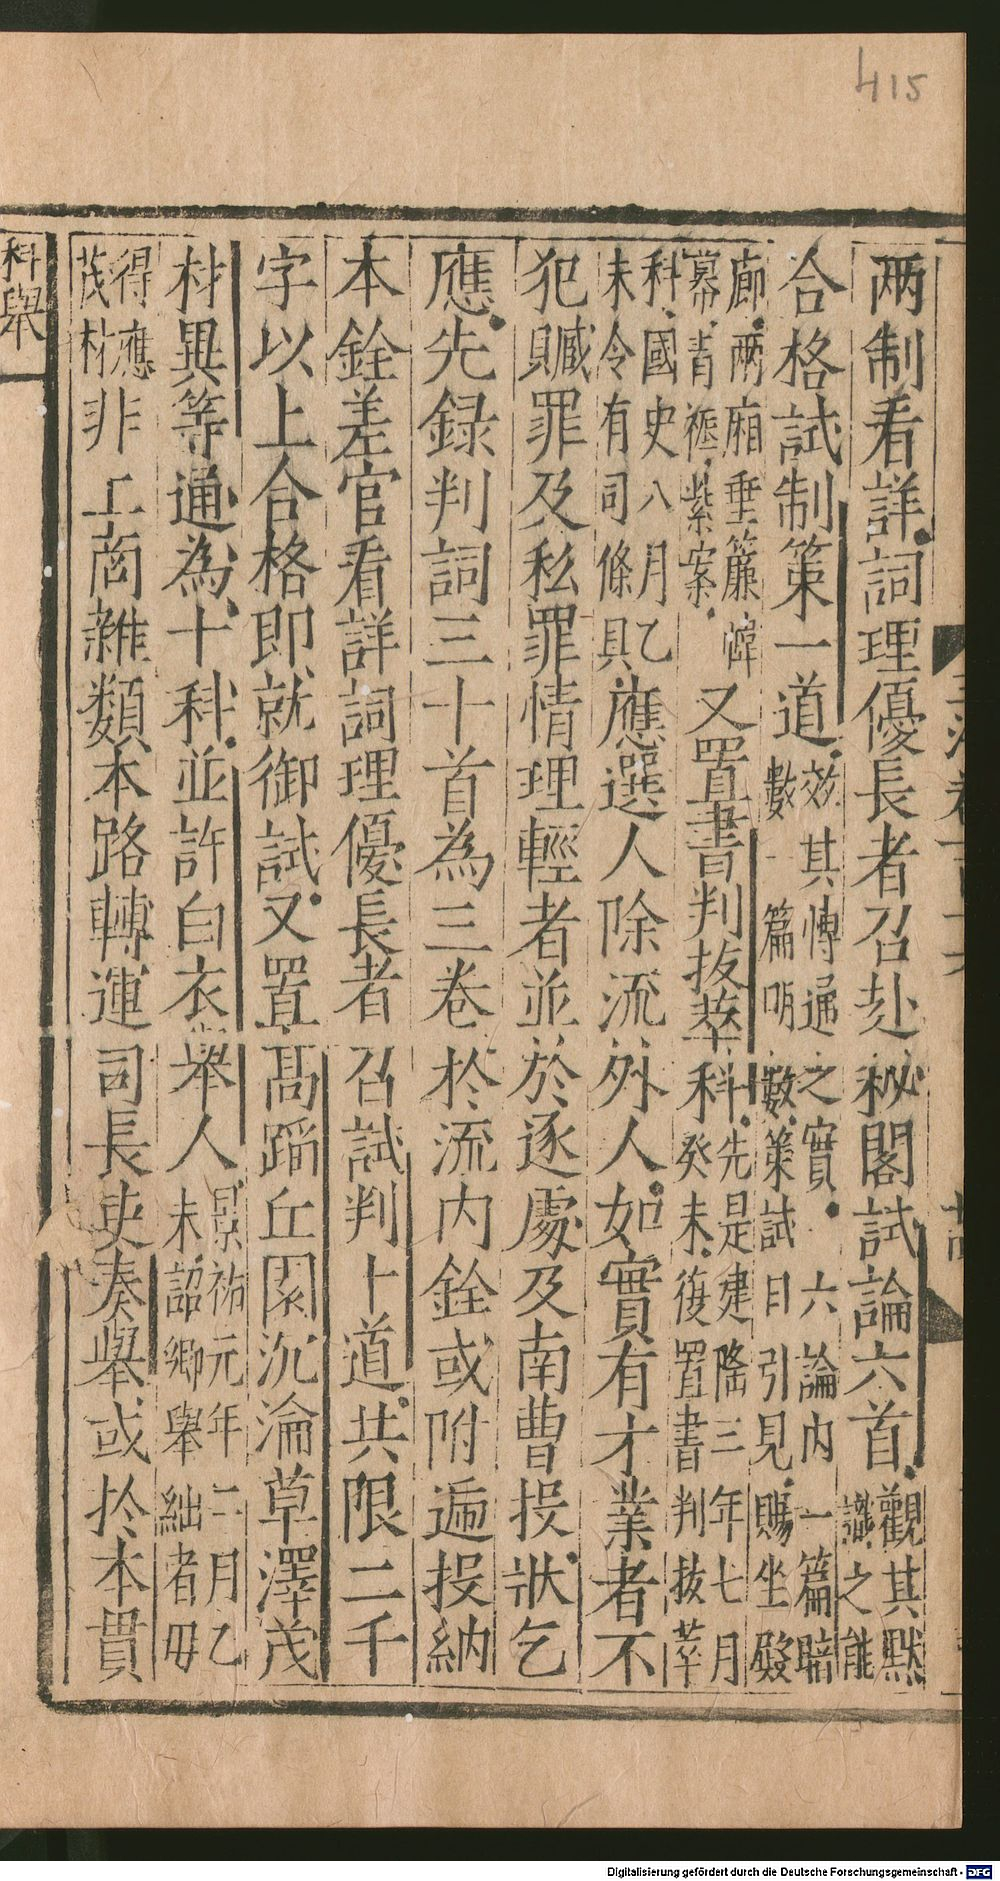 415
兩制看詳詞理優長者召赴秘閣試論六首觀其黙識之能
合格試制策一道效其博通之實六論內一篇暗數一篇明數策試日引見賜坐殿
廊兩廂垂簾幃幕青褥紫案又置書判拔萃科先是建隆三年七月癸未復置書判拔萃
科國史八月乙未令有司條具應選人除流外人如實有才業者不
犯贓罪及私罪情理輕者並於逐處及南曹投狀乞
應先録判詞三十首為三卷於流內銓或附遞投納
本銓差官看詳詞理優長者召試判十道共限二千
字以上合格即就御試又置髙蹈丘園沉淪草澤茂
材異等通為十科並許白衣舉人景祐元年二月乙未詔鄉舉絀者毋
得應茂材非工啇雜類本路轉運司長吏奏舉或於本貫
科舉
Digitalisierung gefördert durch die Deutsche Forschungsgemeinschaft - DFG